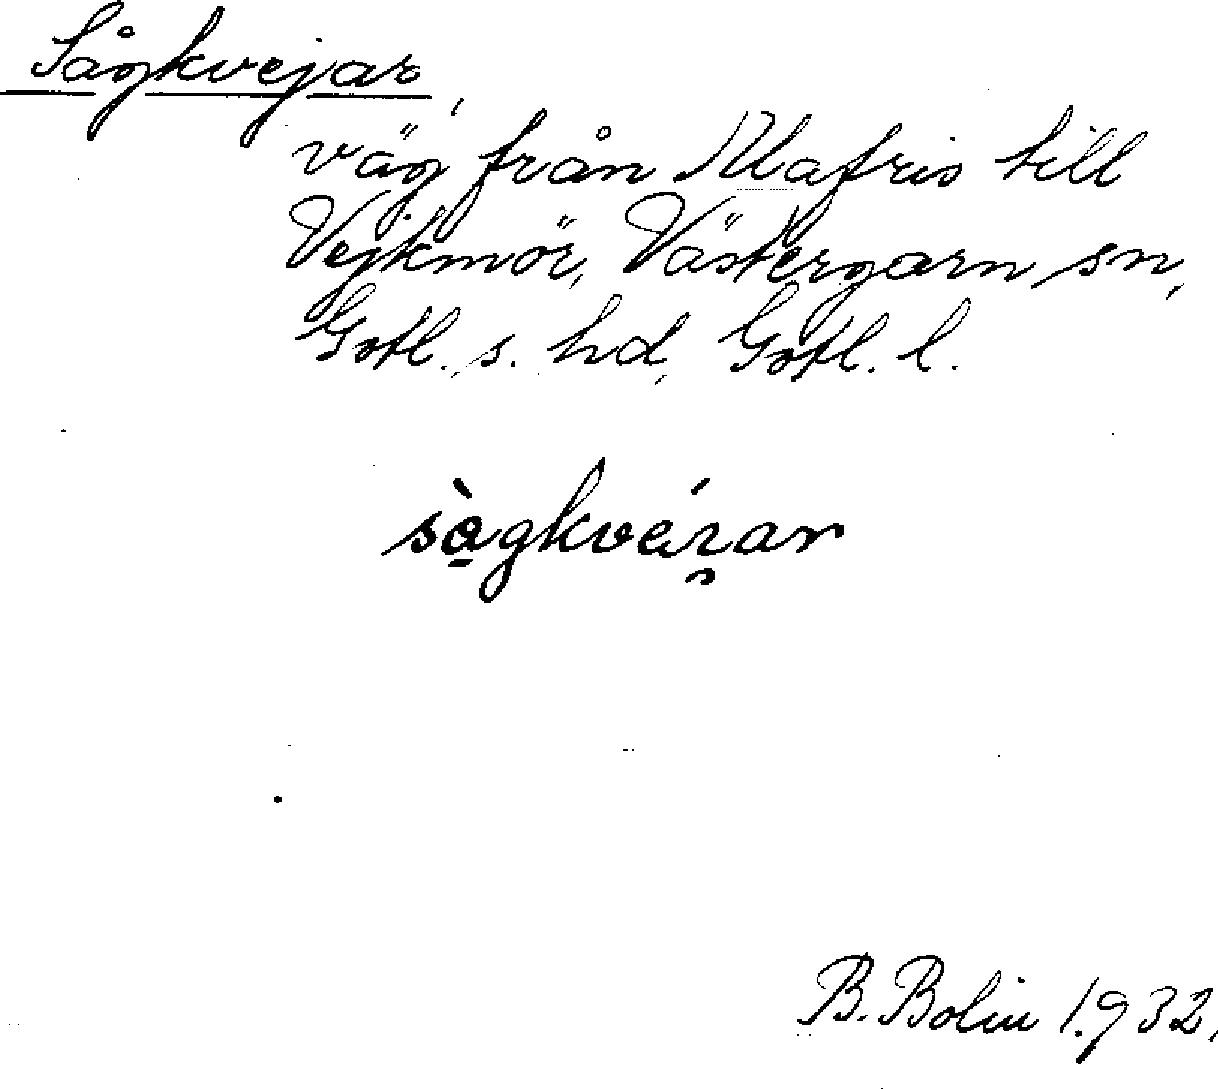 Sågkvejar,
väg från Klafris till
Vejkmör, Västergarn sn,
Gotl. s. hd, Gotl. l.
B. Bolin 1932.